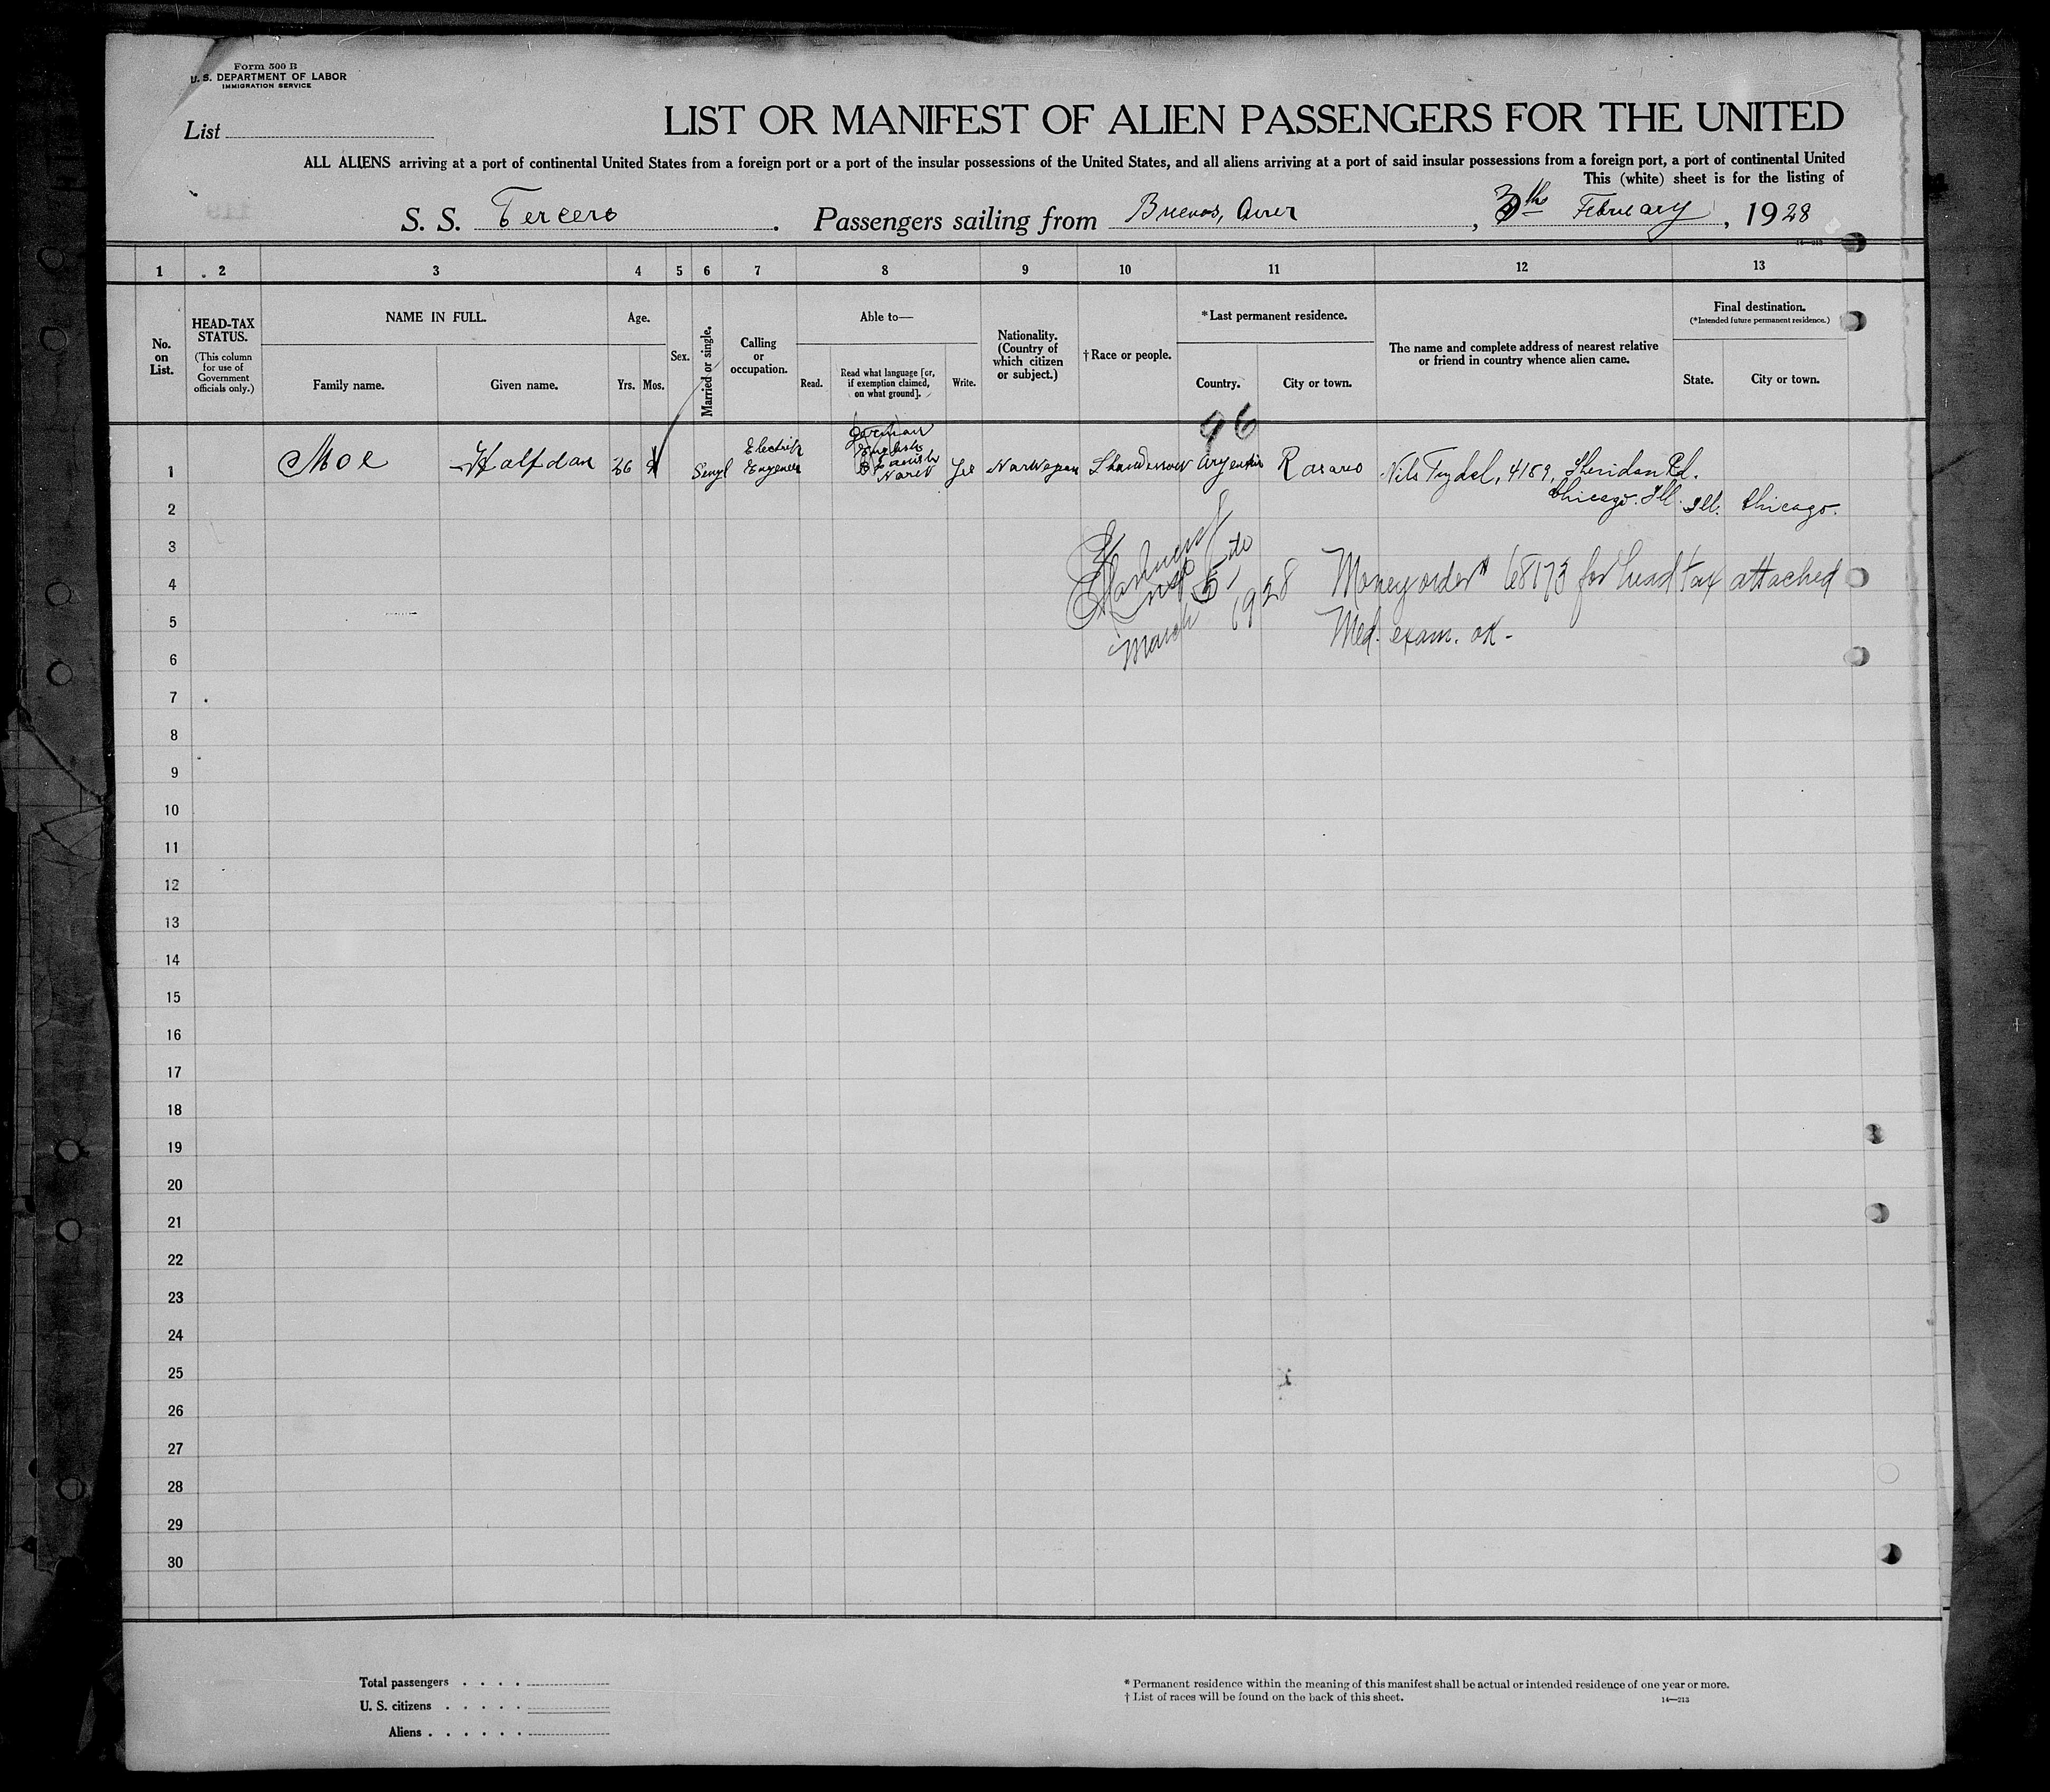 Form 500 B
U. S. DEPARTMENT OF LABOR
IMMIGRATION SERVICE
List
LIST OR MANIFEST OF ALIEN PASSENGERS FOR THE UNITED
ALL ALIENS arriving at a port of continental United States from a foreign port or a port of the insular possessions of the United States, and all aliens arriving at a port of said insular possessions from a foreign port, a port of continental United
This (white) sheet is for the listing of
S. S. Tercero. Passengers sailing from Buenos, Aires, February, 1928
14—213
1 2 3 4 5 6 7 8 9 10 11 12 13
No. on List.
HEAD-TAX STATUS.
(This column for use of Government officials only.)
NAME IN FULL.
Family name.
Given name.
Age.
Yrs. Mos.
Sex.
Married or single.
Calling or occupation.
Able to—
Read.
Read what language [or, if exemption claimed, on what ground].
Write.
Nationality. (Country of which citizen or subject.)
† Race or people.
* Last permanent residence.
Country.
City or town.
The name and complete address of nearest relative or friend in country whence alien came.
Final destination.
(*Intended future permanent residence.)
State.
City or town.
96
German
English
1 Moe Halfdan 26 Yes Norwegan Rosario Nils 4189, Sheridan Rd.
Chicago. Ill.
2 Ill. Chicago.
3
4 Money order # 68173 for head tax attached
March 5, 1928
5 Med. exam. ok -
6
7
8
9
10
11
12
13
14
15
16
17
18
19
20
21
22
23
24
25
26
27
28
29
30
Total passengers
U. S. citizens
Aliens
* Permanent residence within the meaning of this manifest shall be actual or intended residence of one year or more.
† List of races will be found on the back of this sheet.
14—213